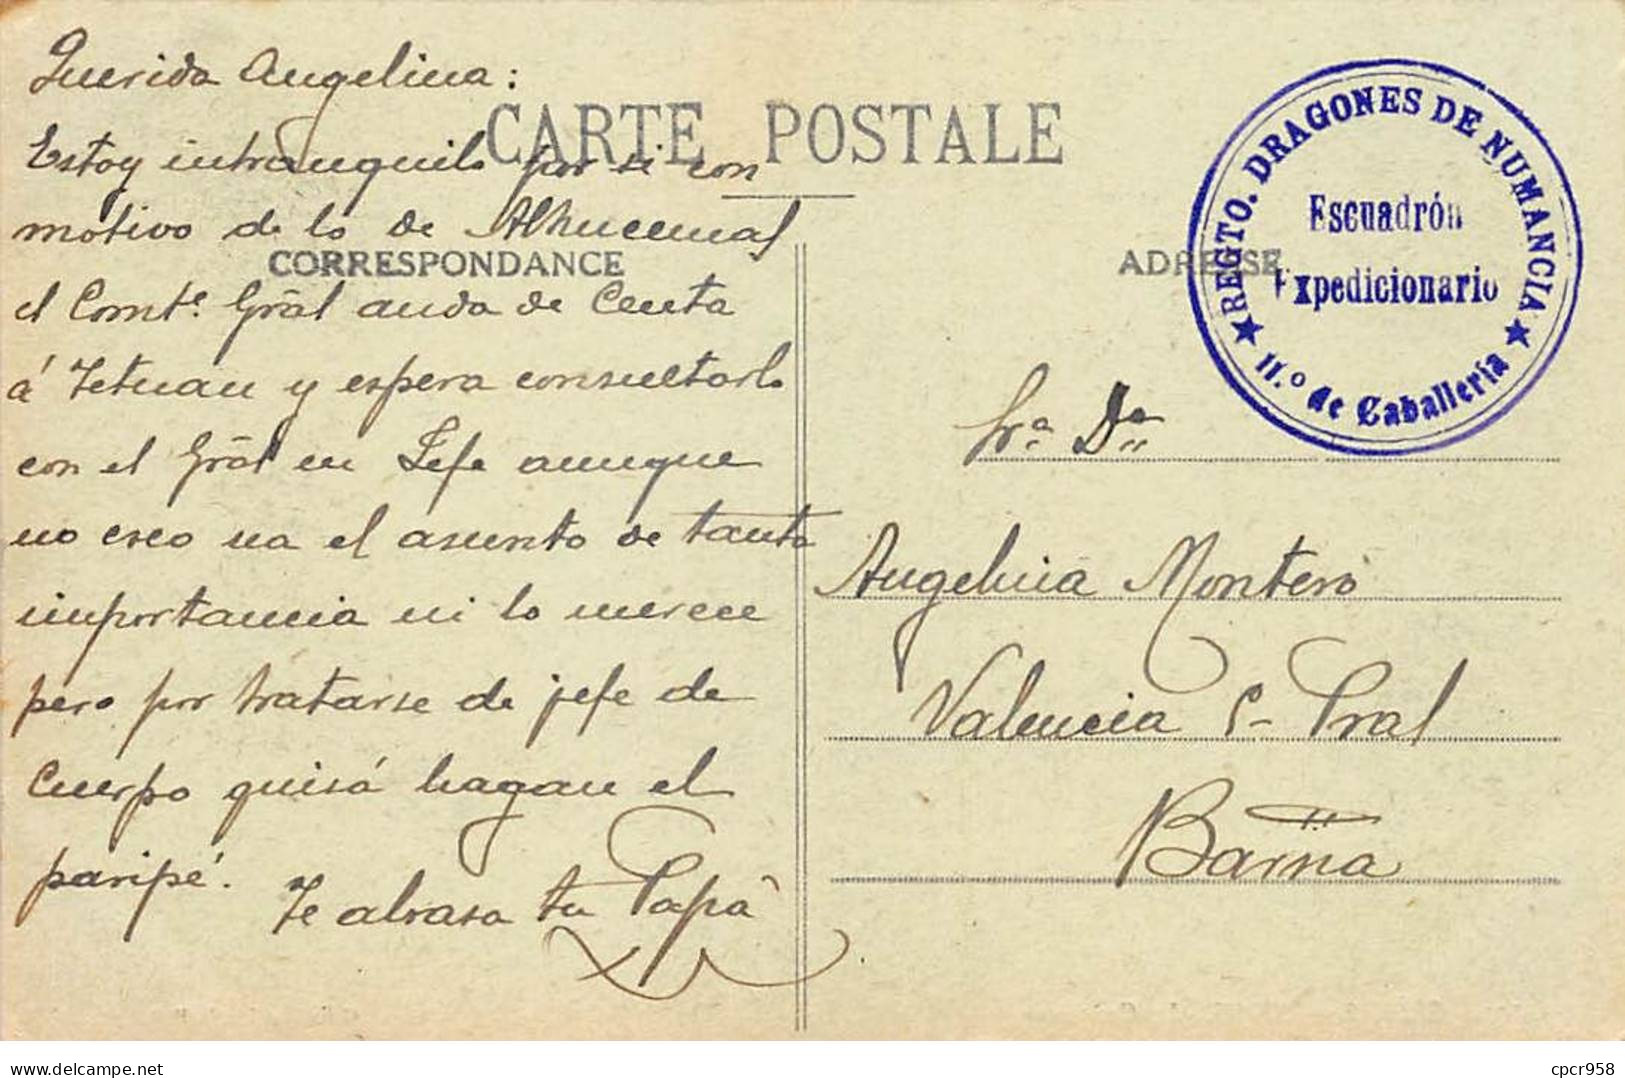 CARTE POSTALE
CORRESPONDANCE
Querida Angelina:
Estoy intranquilo por si con
motivo de lo de Alhucemas
el Comte. Gral anda de Ceuta
á Tetuan y espera consultarlo
con el Gral en Jefe aunque
no creo va el asunto de tanta
importancia ni lo merece
pero por tratarse de jefe de
Cuerpo quisá hagan el
paripé.
Te abrasa tu Papá
ADRESSE
REGTO. DRAGONES DE NUMANCIA
Escuadrón
Expedicionario
★ 11.º de Caballería ★
Sra Da
Angelina Montero
Valencia 5- Pral
Barna
cpcr958